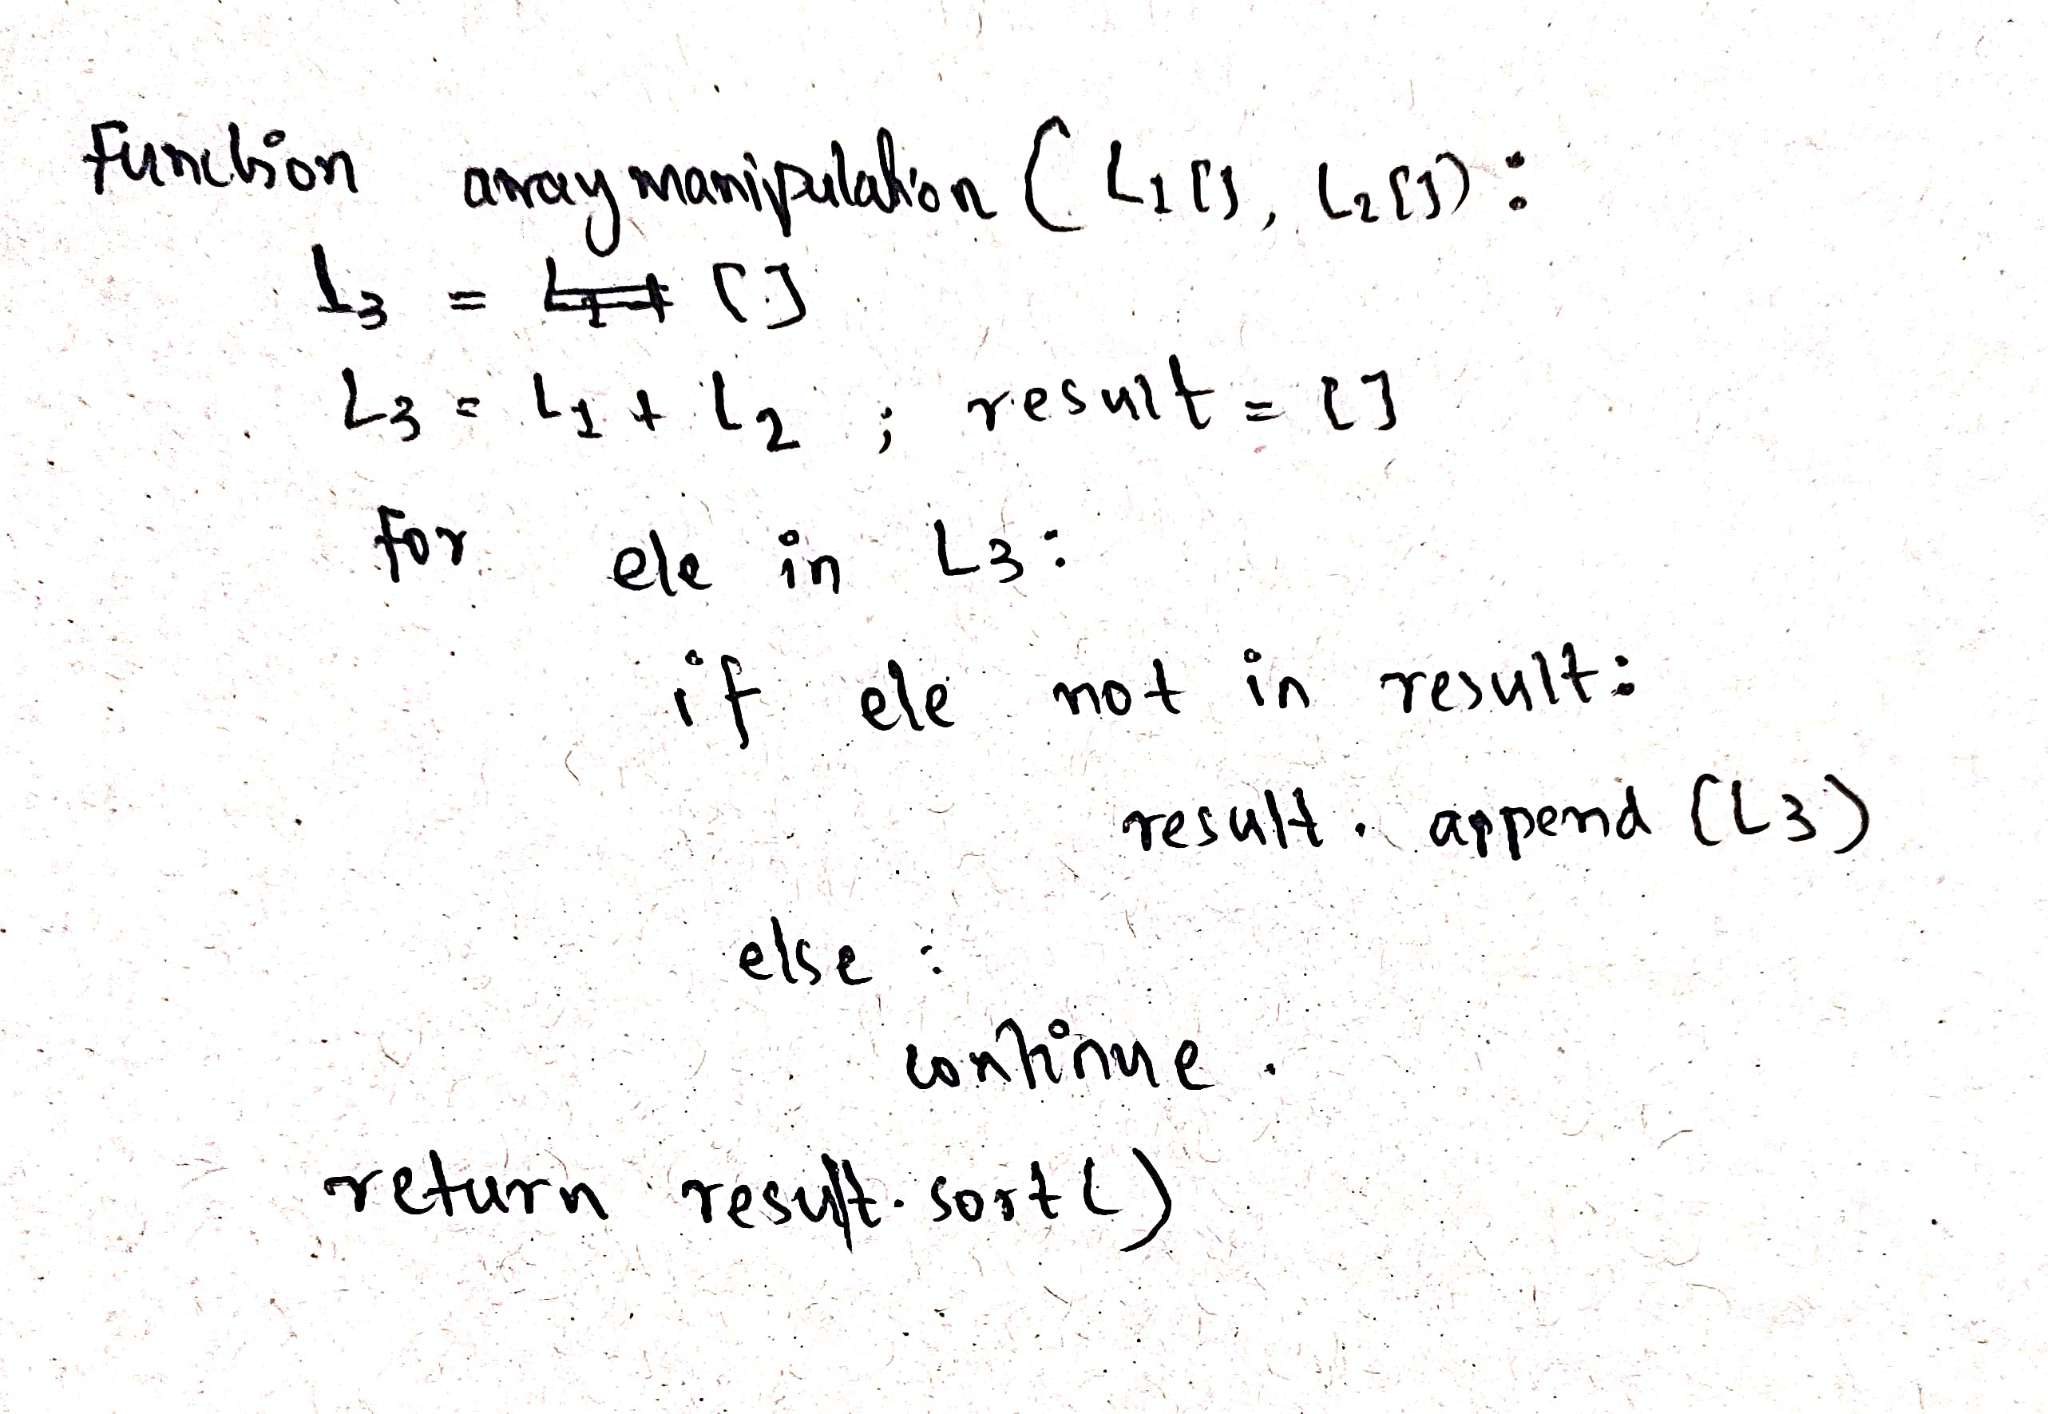 Function arraymanipulation ( L1[], L2[]) :
L3 = []
L3 = L1 + L2 ; result = []
for ele in L3:
if ele not in result:
result. append (L3)
else :
continue.
return result.sort()